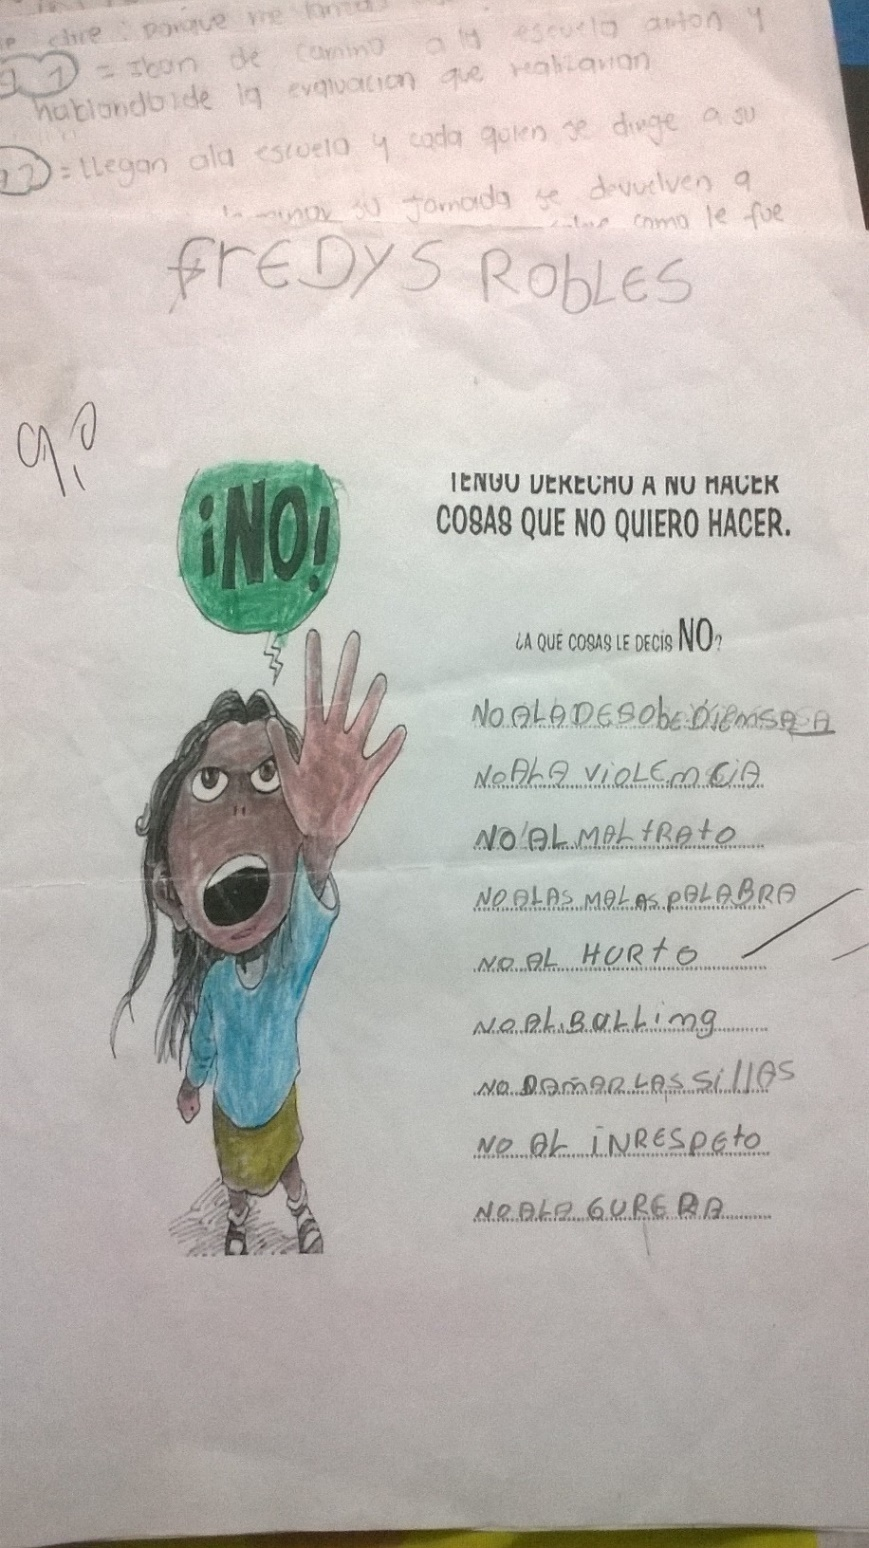 e dice: porque me
9 1 = Iban de camino a la escuela anton y
hablando de la evaluacion que realizarian
92 = llegan ala escuela y cada quien se dirige a su
su Jornada se devuelven a
como le fue
frEDYS RObLES
9,0
¡NO!
TENGO DERECHO A NO HACER
COSAS QUE NO QUIERO HACER.
¿A QUÉ COSAS LE DECÍS NO?
NO ALA DESObEDiEmSA
NO ALA ViOLEmCiA
NO AL MALtRAtO
NO ALAS MALAS PALABRA
NO AL HURtO
NO AL BULLimg
NO DAÑAR LAS SillAS
NO AL iNRESPEtO
NO ALA GURERA